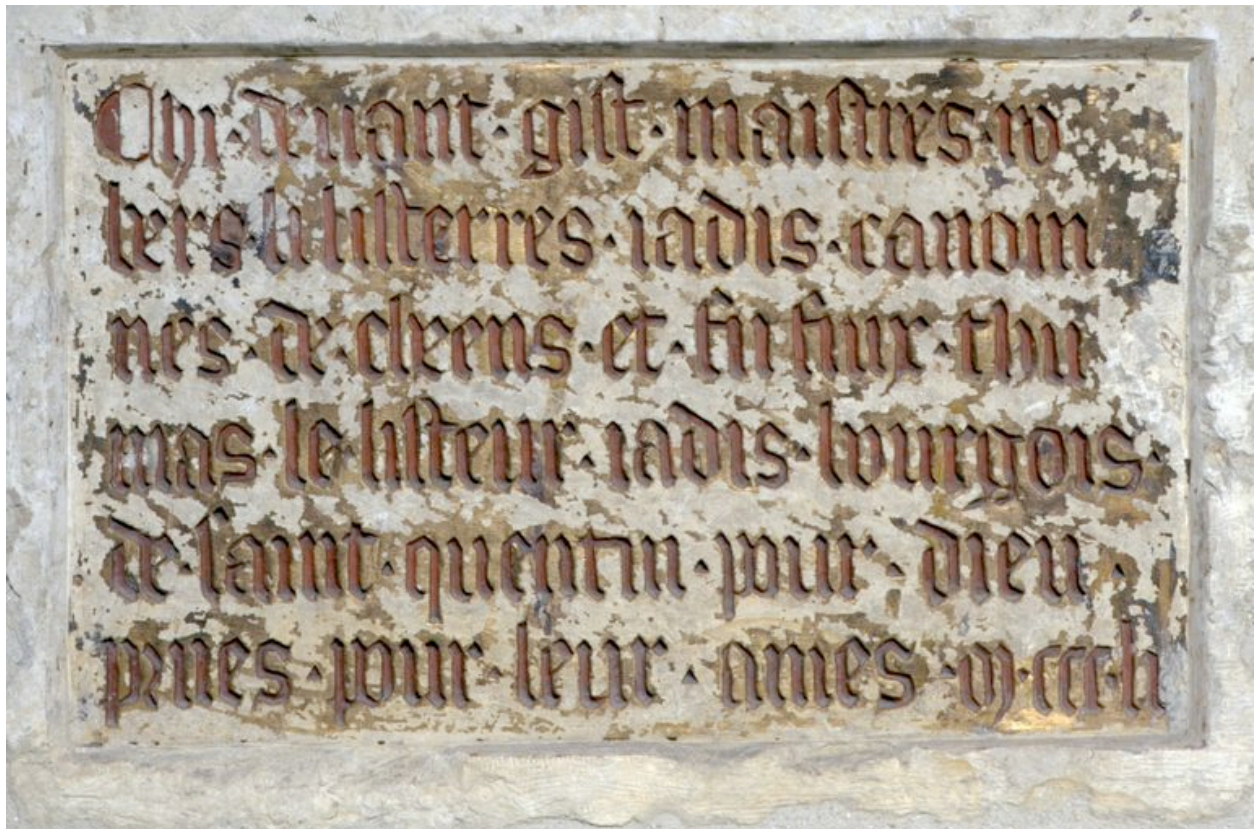 Chi · deuant · gist · maistres · ro
bers · li listerres · iadis · canoin
nes · de · cheens · et · fu fiux · thu
mas · le listeur · iadis · bourgois ·
de · saint · quentin · pour · dieu ·
priies · pour · leur · ames · m · ccc · li